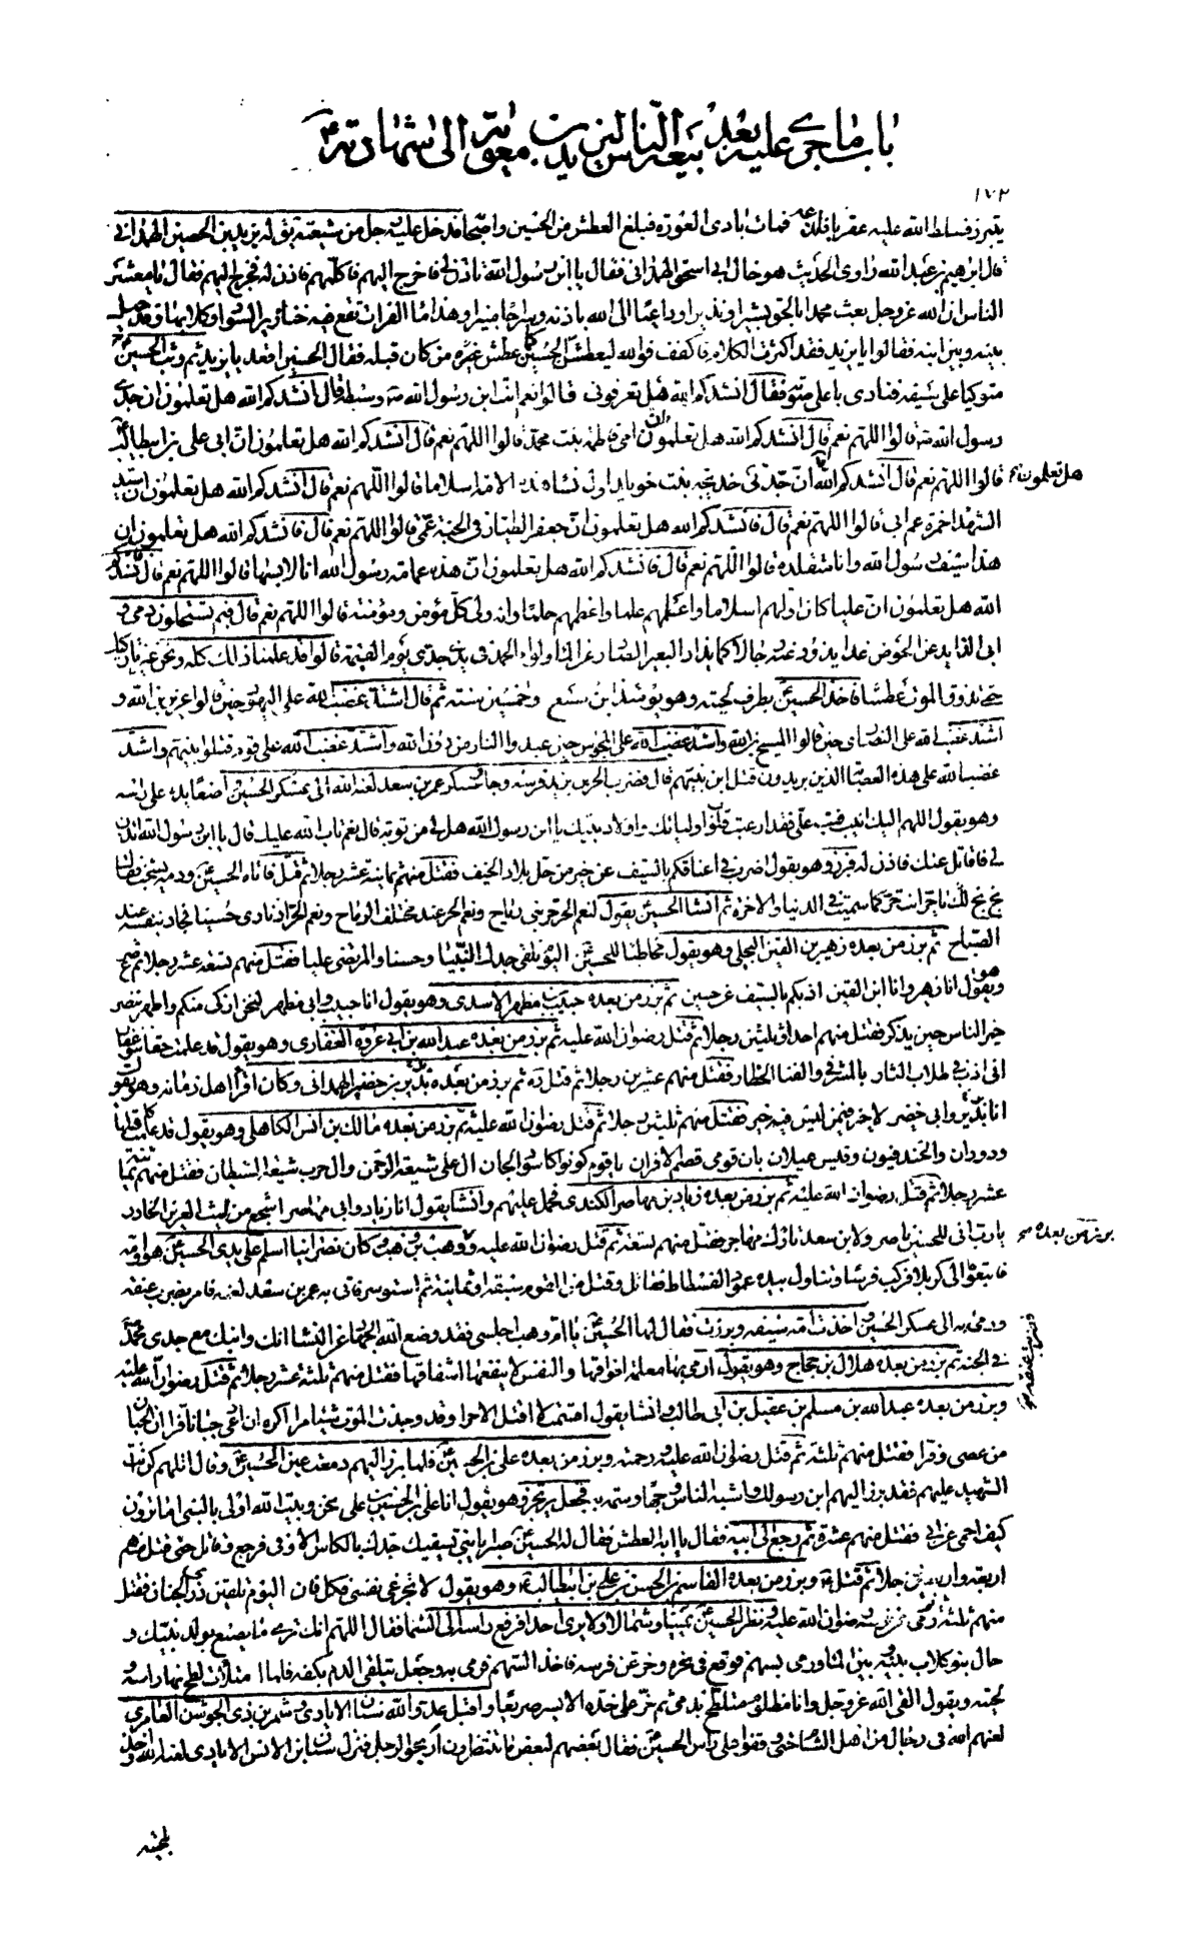 باب ما جرى عليه بعد بيعة الناس ليزيد بن معوية الى شهادته
١٧٢
يتبرز فسلط الله عليه عقربا فلدغته فمات بادى العورة فبلغ العطش من الحسين واصحابه فدخل عليه رجل من شيعته يقال له يزيد بن الحصين الهمداني
قال ابرهيم بن عبد الله راوى الحديث هو خال ابى اسحق الهمدانى فقال يا ابن رسول الله تاذن لى فاخرج اليهم فاكلمهم فاذن له فخرج اليهم فقال يا معشر
الناس ان الله عز وجل بعث محمدا بالحق بشيرا ونذيرا وداعيا الى الله باذنه وسراجا منيرا وهذا ماء الفرات تقع فيه خنازير السواد وكلابها وقد حيل
بينه وبين ابنه فقالوا يا يزيد فقد اكثرت الكلام فاكفف فوالله ليعطش الحسين كما عطش من كان قبله فقال الحسين اقعد يا يزيد ثم وثب الحسين
متوكيا على سيفه فنادى باعلى صوته فقال انشدكم الله هل تعرفونى قالوا نعم انت ابن رسول الله وسبطه قال انشدكم الله هل تعلمون ان جدى
رسول الله قالوا اللهم نعم قال انشدكم الله هل تعلمون ان امى فاطمة بنت محمد قالوا اللهم نعم قال انشدكم الله هل تعلمون ان ابى على بن ابيطالب
قالوا اللهم نعم قال انشدكم الله هل تعلمون ان جدتى خديجة بنت خويلد اول نساء هذه الامة اسلاما قالوا اللهم نعم قال انشدكم الله هل تعلمون ان سيد
الشهداء حمزة عم ابى قالوا اللهم نعم قال فانشدكم الله هل تعلمون ان جعفر الطيار فى الجنة عمى قالوا اللهم نعم قال فانشدكم الله هل تعلمون ان
هذا سيف رسول الله وانا متقلده قالوا اللهم نعم قال فانشدكم الله هل تعلمون ان هذه عمامة رسول الله انا لابسها قالوا اللهم نعم قال فانشدكم
الله هل تعلمون ان عليا كان اولهم اسلاما واعلمهم علما واعظمهم حلما وانه ولى كل مؤمن ومؤمنة قالوا اللهم نعم قال فبم تستحلون دمى و
ابى الذايد عن الحوض غدا يذود عنه رجالا كما يذاد البعير الصادر عن الماء ولواء الحمد فى يد جدى يوم القيمة قالوا قد علمنا ذلك كله ونحن غير تاركيك
حتى تذوق الموت عطشا فاخذ الحسين بطرف لحيته وهو يومئذ ابن سبع وخمسين سنة ثم قال اشتد غضب الله على اليهود حين قالوا عزير بن الله و
اشتد غضب الله على النصارى حين قالوا المسيح بن الله واشتد غضب الله على المجوس حين عبدوا النار من دون الله واشتد غضب الله على قوم قتلوا نبيهم واشتد
غضب الله على هذه العصابة الذين يريدون قتل ابن نبيهم قال فضرب الحر بن يزيد فرسه وجاز عسكر عمر بن سعد لعنه الله الى عسكر الحسين واضعا يده على راسه
وهو يقول اللهم اليك انيب فتب على فقد ارعبت قلوب اوليائك واولاد نبيك يا ابن رسول الله هل لى من توبة قال نعم تاب الله عليك قال يا ابن رسول الله ائذن
لى فاقاتل عنك فاذن له فبرز وهو يقول اضرب فى اعناقكم بالسيف عن خير من حل بلاد الخيف فقتل منهم ثمانية عشر رجلا ثم قتل فاتاه الحسين ودمه يشخب فقال
بخ بخ لك يا حر انت حر كما سميت فى الدنيا والاخرة ثم انشا الحسين يقول لنعم الحر حر بنى رياح ونعم الحر عند مختلف الرماح ونعم الحر اذ نادى حسينا فجاد بنفسه عند
الصباح ثم برز من بعده زهير بن القين البجلى وهو يقول مخاطبا للحسين اليوم نلقى جدك النبيا وحسنا والمرتضى عليا فقتل منهم تسعة عشر رجلا ثم صرع
وهو يقول انا زهير وانا ابن القين اذبكم بالسيف عن حسين ثم برز من بعده حبيب بن مظهر الاسدى وهو يقول انا حبيب وابى مظهر لنحن ازكى منكم واطهر ننصر
خير الناس حين يذكر فقتل منهم احدا وثلثين رجلا ثم قتل رضوان الله عليه ثم برز من بعده عبد الله بن ابى عروة الغفارى وهو يقول قد علمت حقا بنو غفار
انى اذب فى طلاب الثار بالمشرفى والقنا الخطار فقتل منهم عشرين رجلا ثم قتل ره ثم برز من بعده بدير بن حضير الهمدانى وكان اقرا اهل زمانه وهو يقول
انا بدير وابى حضير لا خير فيمن ليس فيه خير فقتل منهم ثلثين رجلا ثم قتل رضوان الله عليه ثم برز من بعده مالك بن انس الكاهلى وهو يقول قد علمت كاهلها
ودودان والخندفيون وقيس عيلان بان قومى قصم الاقران يا قوم كونوا كاسود الجان ال على شيعة الرحمن وال حرب شيعة الشيطان فقتل منهم ثمانية
عشر رجلا ثم قتل رضوان الله عليه ثم برز من بعده زياد بن مهاصر الكندى فحمل عليهم وانشا يقول انا زياد وابى مهاصر اشجع من ليث العرين الخادر
يا رب انى للحسين ناصر ولابن سعد تارك مهاجر فقتل منهم تسعة ثم قتل رضوان الله عليه وبرز من بعده وهب بن وهب وكان نصرانيا اسلم على يدى الحسين هو وامه
فاتبعوه الى كربلا فركب فرسا وتناول بيده عمود الفسطاط فقاتل وقتل من القوم سبعة او ثمانية ثم استوسر فاتى به عمر بن سعد لعنه فامر بضرب عنقه فضربت عنقه
ورمى به الى عسكر الحسين واخذت امه سيفه وبرزت فقال لها الحسين يا ام وهب اجلسى فقد وضع الله الجهاد عن النساء انك وابنك مع جدى محمد
فى الجنة ثم برز من بعده هلال بن حجاج وهو يقول ارمى بها معلمة افواقها والنفس لا ينفعها اشفاقها فقتل منهم ثلثة عشر رجلا ثم قتل رضوان الله عليه
وبرز من بعده عبد الله بن مسلم بن عقيل بن ابى طالب وانشا يقول اقسمت لا اقتل الا حرا وقد وجدت الموت شيئا مرا اكره ان ادعى جبانا فرا ان الجبان
من عصى وفرا فقتل منهم ثلثة ثم قتل رضوان الله عليه ورحمته وبرز من بعده على بن الحسين فلما برز اليهم دمعت عين الحسين وقال اللهم كن انت
الشهيد عليهم فقد برز اليهم ابن رسولك واشبه الناس وجها وسمتا به فجعل يرتجز وهو يقول انا على بن الحسين بن على نحن وبيت الله اولى بالنبى اما ترون
كيف احمى عن ابى فقتل منهم عشرة ثم رجع الى ابيه فقال يا ابه العطش فقال له الحسين صبرا يا بنى يسقيك جدك بالكاس الاوفى فرجع فقاتل حتى قتل منهم
اربعة واربعين رجلا ثم قتل وبرز من بعده القاسم بن الحسن بن على بن ابيطالب وهو يقول لا تجزعى نفسى فكل فان اليوم تلقين ذرى الجنان فقتل
منهم ثلثة ثم رمى عن فرسه رضوان الله عليه ونظر الحسين يمينا وشمالا ولا يرى احدا فرفع راسه الى السماء فقال اللهم انك ترى ما يصنع بولد نبيك و
حال بنو كلاب بينه وبين الماء ورمى بسهم فوقع فى نحره وخر عن فرسه فاخذ السهم فرمى به وجعل يتلقى الدم بكفه فلما امتلات لطخ بها راسه و
لحيته ويقول القى الله عز وجل وانا مظلوم متلطخ بدمى ثم خر على خده الايسر صريعا واقبل عدو الله سنان الايادى وشمر بن ذى الجوشن العامرى
لعنهم الله فى رجال من اهل الشام حتى وقفوا على راس الحسين فقال بعضهم لبعض ما تنتظرون اريحوا الرجل فنزل سنان بن الانس الايادى لعنه الله واخذ
بلحيته